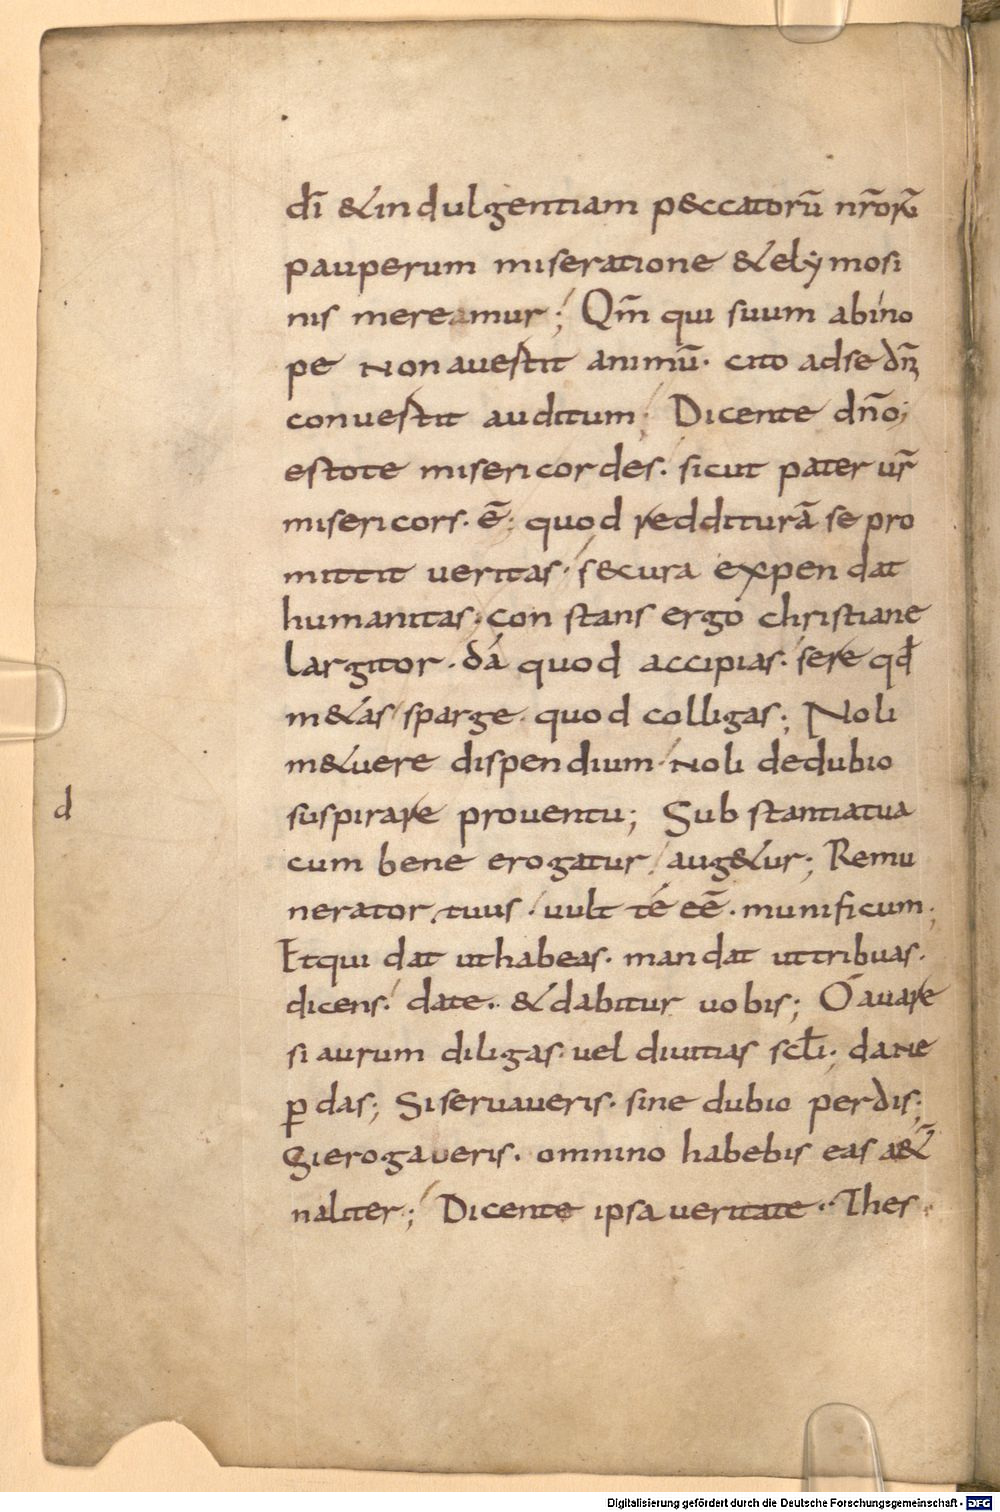 dī &indulgentiam p&ccatorū nr̄orū
pauperum miseratione &elymosi
nis mereamur; Qm̄ qui suum abino
pe non auestit animū· cito adse dn̄m
conuestit auditum; Dicente dn̄o;
estote misericordes· sicut pater ur̄
misericors· ē· quod redditurā se pro
mittit ueritas· s&cura expendat
humanitas· constans ergo christiane
largitor· da quod accipias· sere qđ
m&as sparge· quod colligas; Noli
m&uere dispendium· noli dedubio
suspirare prouentu; Substantia tua
cum bene erogatur aug&ur; Remu
nerator tuus· uult té eē· munificum;
Et qui dat uthabeas· mandat uttribuas·
dicens· date· &dabitur uobis; O auare
si aurum diligas· uel diuitias scłi; da ne
ꝑdas; Si seruaueris· sine dubio perdis;
Si erogaueris· omnino habebis eas a&̄
naliter; Dicente ipsa ueritate· Thes
d
Digitalisierung gefördert durch die Deutsche Forschungsgemeinschaft - DFG